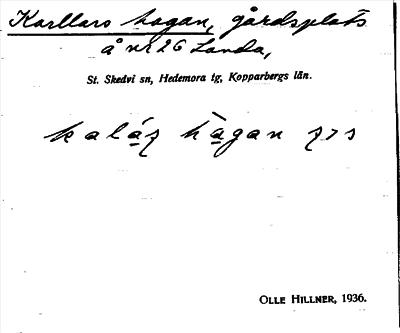 Karllars hagan, gårdsplats
å nr 26 Landa,
St. Skedvi sn, Hedemora tg, Kopparbergs län.
kaláz hàgan
OLLE HILLNER, 1936.